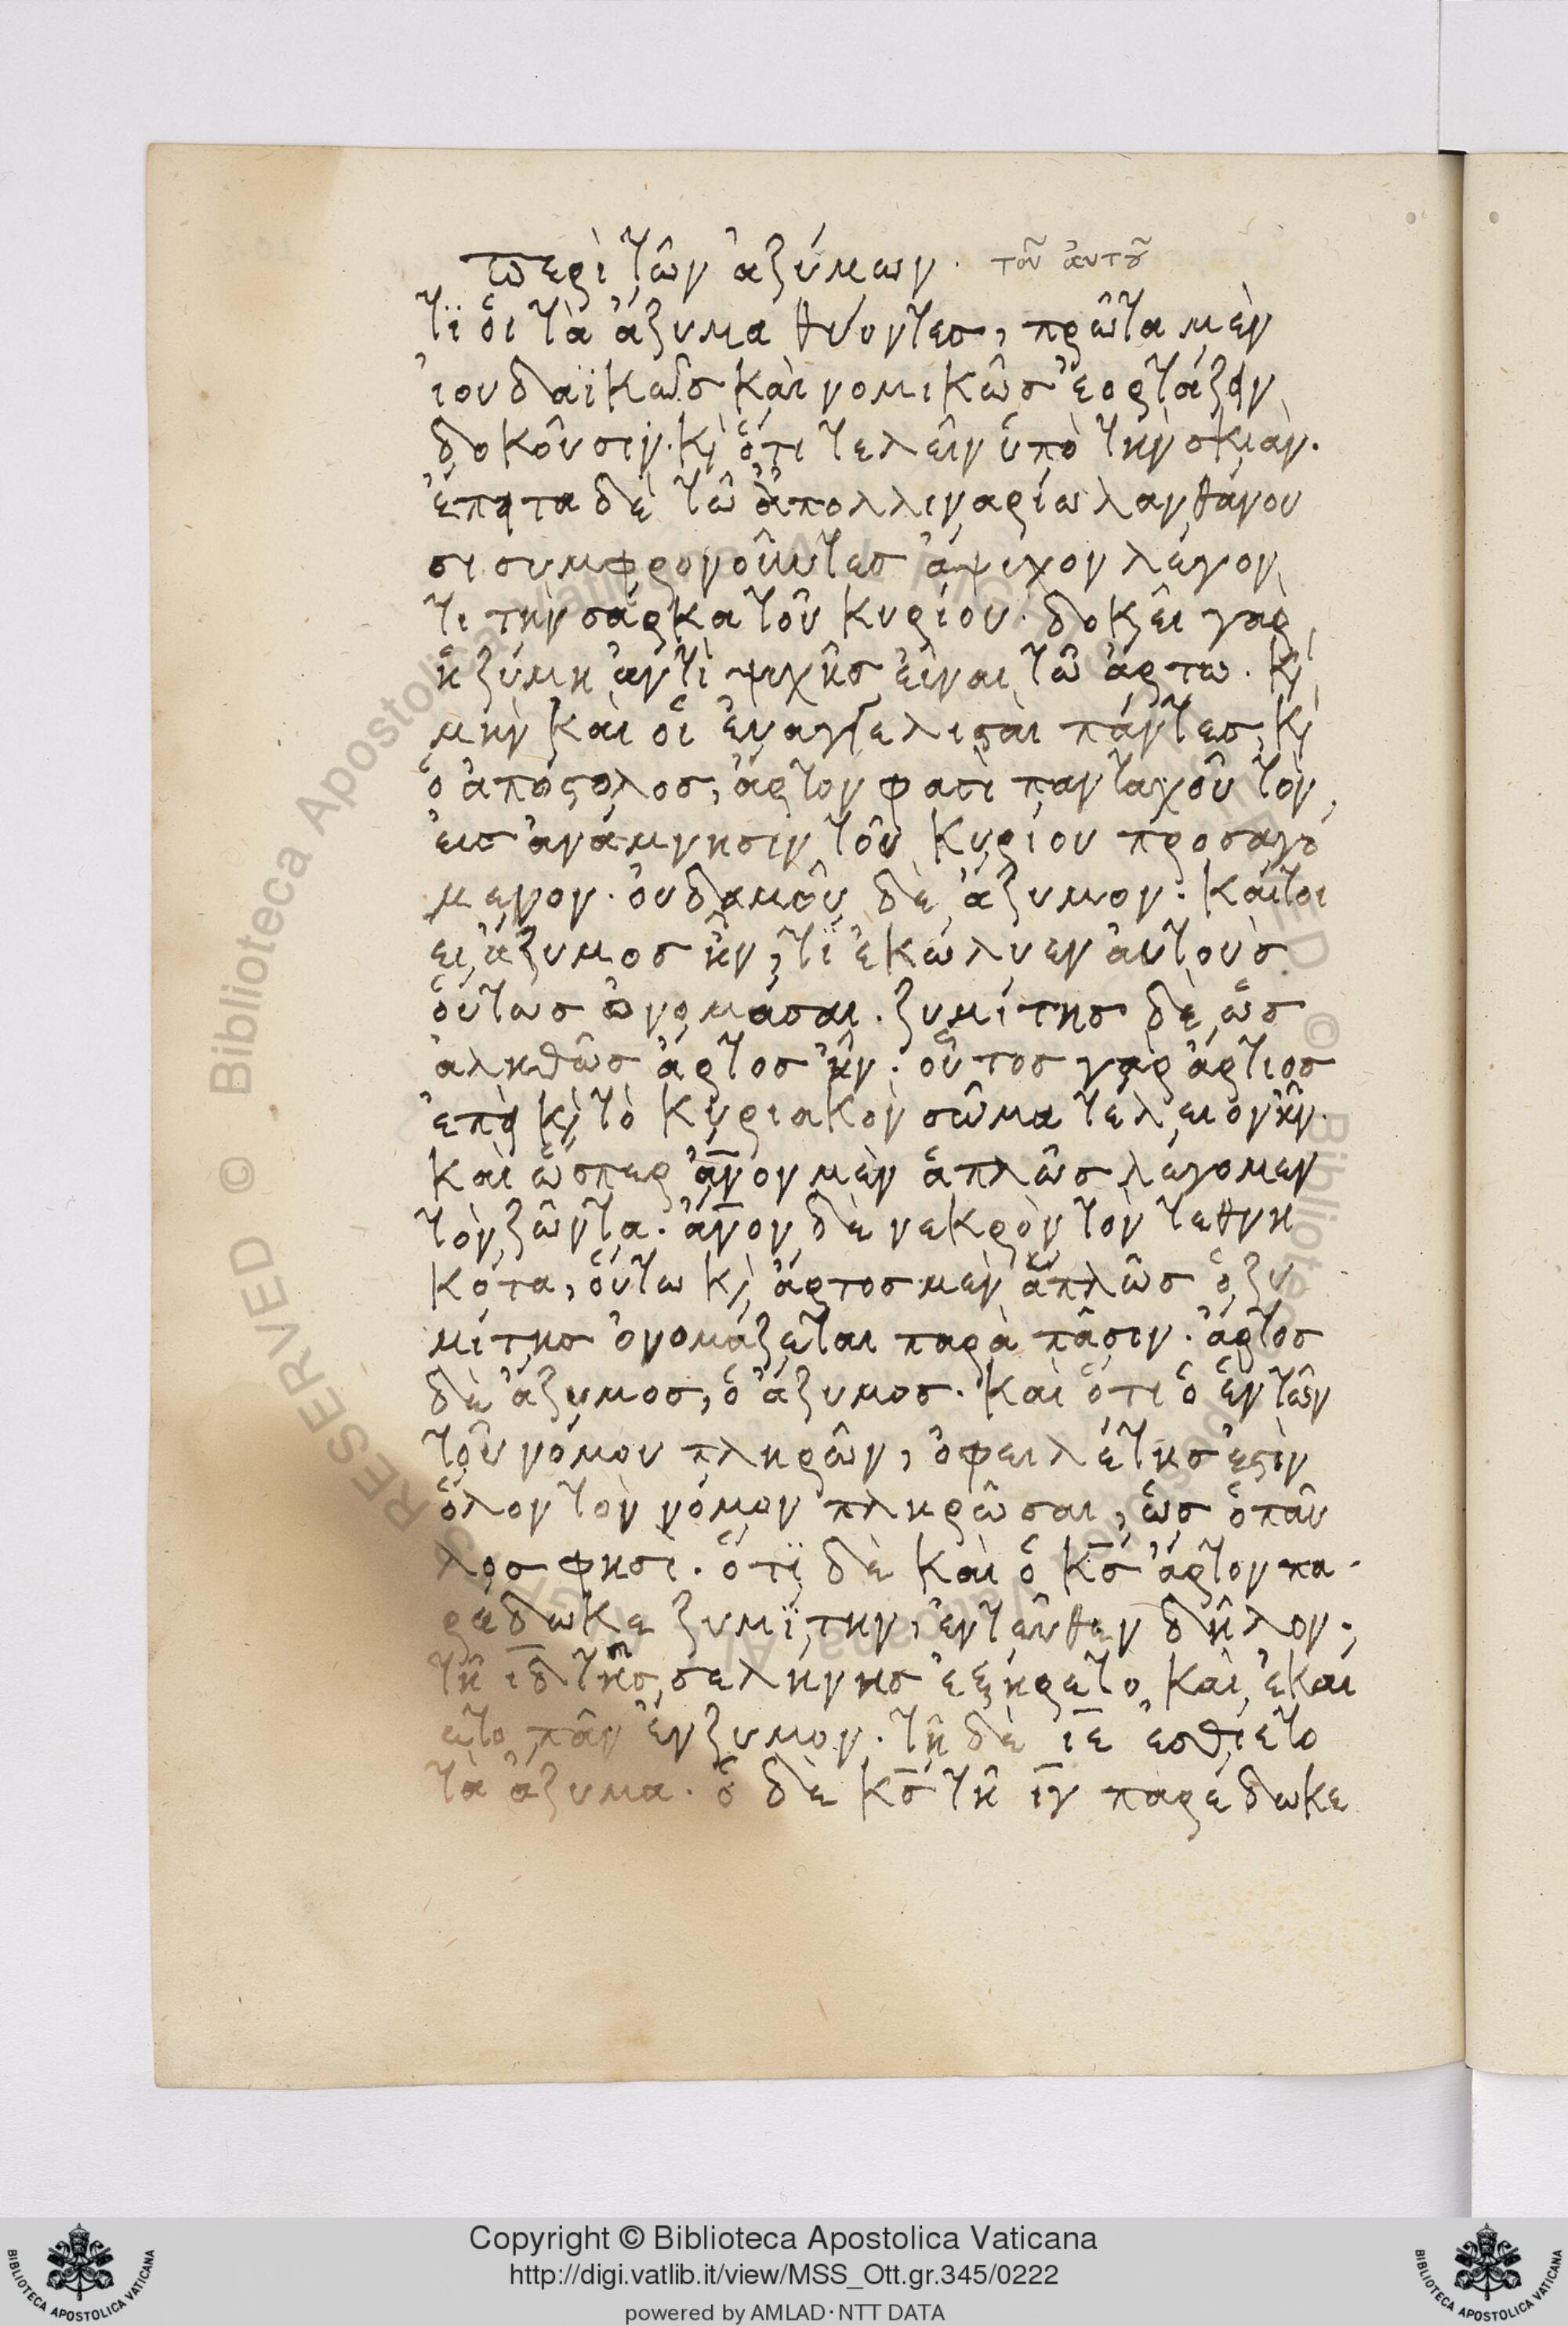 περὶ τῶν ἀζύμων. τοῦ ἀυτοῦ
τϊ ὁι τὰ ἄζυμα θύοντεσ, πρῶτα μὲν
ἰουδαϊκῶσ καὶ νομικῶσ ἑορτάζειν
δοκοῦσιν. κὶ ὅτι τελεῖν ὑπὸ τὴν σκιὰν.
ἔπειτα δὲ τῶ ἀπολλιναρίω λανθάνου
σι συμφρονοῦντεσ ἄψυχον λέγον
τι τὴν σάρκα τοῦ κυρίου. δοκεῖ γὰρ
ἡ ζύμη ἀντὶ ψυχῆσ εἶναι τῶ ἄρτω. κὶ
μὴν καὶ οἱ ἐυαγγελισαὶ πάντεσ, κὶ
ὁ ἀπόςολοσ, ἄρτον φασὶ πανταχοῦ τὸν
ἐισ ἀνάμνησιν τοῦ κυρίου προσαγό
μενον. ὀυδαμοῦ δὲ ἄζυμον. καίτοι
ει ἄζυμοσ ἦν, τϊ ἐκώλυεν ἀυτοὺσ
ὅυτωσ ὠνομάσαι. ζυμίτησ δὲ ὡσ
ἀληθῶσ ἄρτοσ ἦν. οὗτοσ γὰρ ἄρτιοσ
ἐπεὶ κὶ τὸ κυριακὸν σῶμα τέλειον ἦν.
καὶ ὥσπερ ἄν̅ον μὲν ἁπλῶσ λέγομεν
τὸν ζῶντα. ἄν̅ον δὲ νεκρὸν τὸν τεθνη
κότα, ὅυτω κὶ ἄρτοσ μὲν ἁπλῶσ ὁ ζυ
μίτησ ὀνομάζεται παρὰ πᾶσιν. ἄρτοσ
δὲ ἄζυμοσ, ὁ ἄζυμοσ. καὶ ὅτι ὁ ἓν τῶν
τοῦ νόμου πληρῶν, ὀφειλέτησ ἐςὶν
ὅλον τὸν νόμον πληρῶσαι, ὡσ ὁ παῦ
λοσ φησὶ. ὅτϊ δὲ καὶ ὁ κ̅σ ἄρτον πα-
ρέδωκε ζυμϊτην, ἐντεῦθεν δῆλον.,
τῆ ι̅δ τῆσ σελήνησ ἐξήρετο καὶ ἐκαί
ετο πᾶν ἔνζυμον. τῆ δὲ ι̅ε ἐσθίετο
τὰ ἄζυμα. ὁ δὲ κ̅σ τῆ ι̅γ παρέδωκε
Copyright © Biblioteca Apostolica Vaticana
http://digi.vatlib.it/view/MSS_Ott.gr.345/0222
powered by AMLAD·NTT DATA